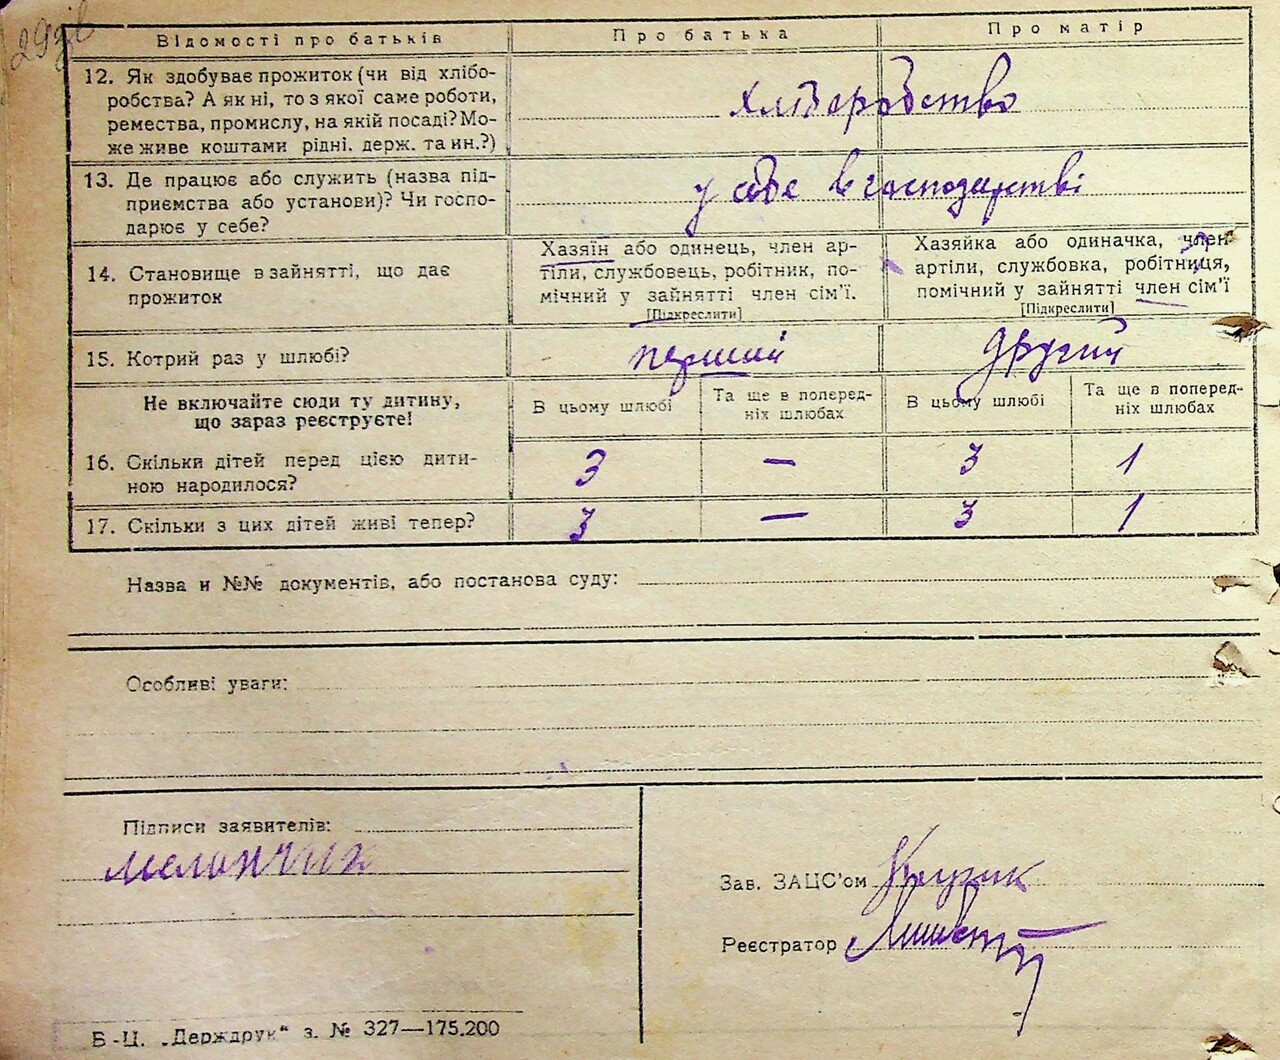 29зв
Відомості про батьків Про батька Про матір
12. Як здобуває прожиток (чи від хлібо-
робства? А як ні, то з якої саме роботи,
ремества, промислу, на якій посаді? Мо-
же живе коштами рідні. держ. та ин.?)
хліборобство
13. Де працює або служить (назва під-
приємства або установи)? Чи госпо-
дарює у себе?
у себе в господарстві
14. Становище в зайнятті, що дає
прожиток
Хазяїн або одинець, член ар-
тіли, службовець, робітник, по-
мічний у зайнятті член сім'ї.
[Підкреслити]
Хазяйка або одиначка, член
артіли, службовка, робітниця,
помічний у зайнятті член сім'ї
[Підкреслити]
15. Котрий раз у шлюбі? перший другий
Не включайте сюди ту дитину,
що зараз реєструєте!
В цьому шлюбі
Та ще в поперед-
ніх шлюбах
В цьому шлюбі
Та ще в поперед-
ніх шлюбах
16. Скільки дітей перед цією дити-
ною народилося?
3 — 3 1
17. Скільки з цих дітей живі тепер? 3 — 3 1
Назва и №№ документів, або постанова суду:
Особливі уваги:
Підписи заявителів:
Зав. ЗАЦС'ом
Реєстратор
Б-Ц. „Держдрук“ з. № 327—175.200